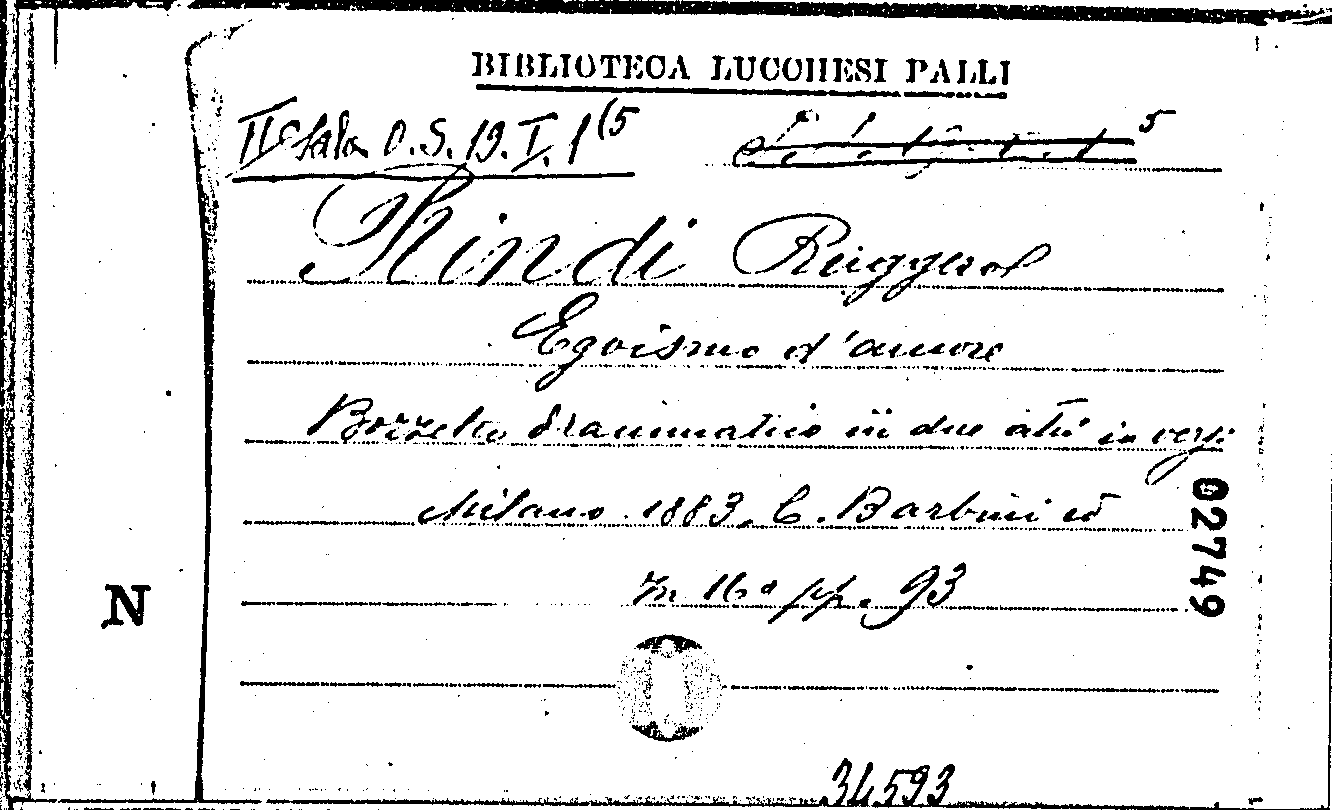 BIBLIOTECA LUCCHESI PALLI
IIa Sala O.S. 19. I. 1 (5
5
Rindi Ruggero
Egoismo d'amore
Bozzetto drammatico in due atti in versi
Milano 1883, C. Barbini ed
In 16º pp. 93
02749
N
34593